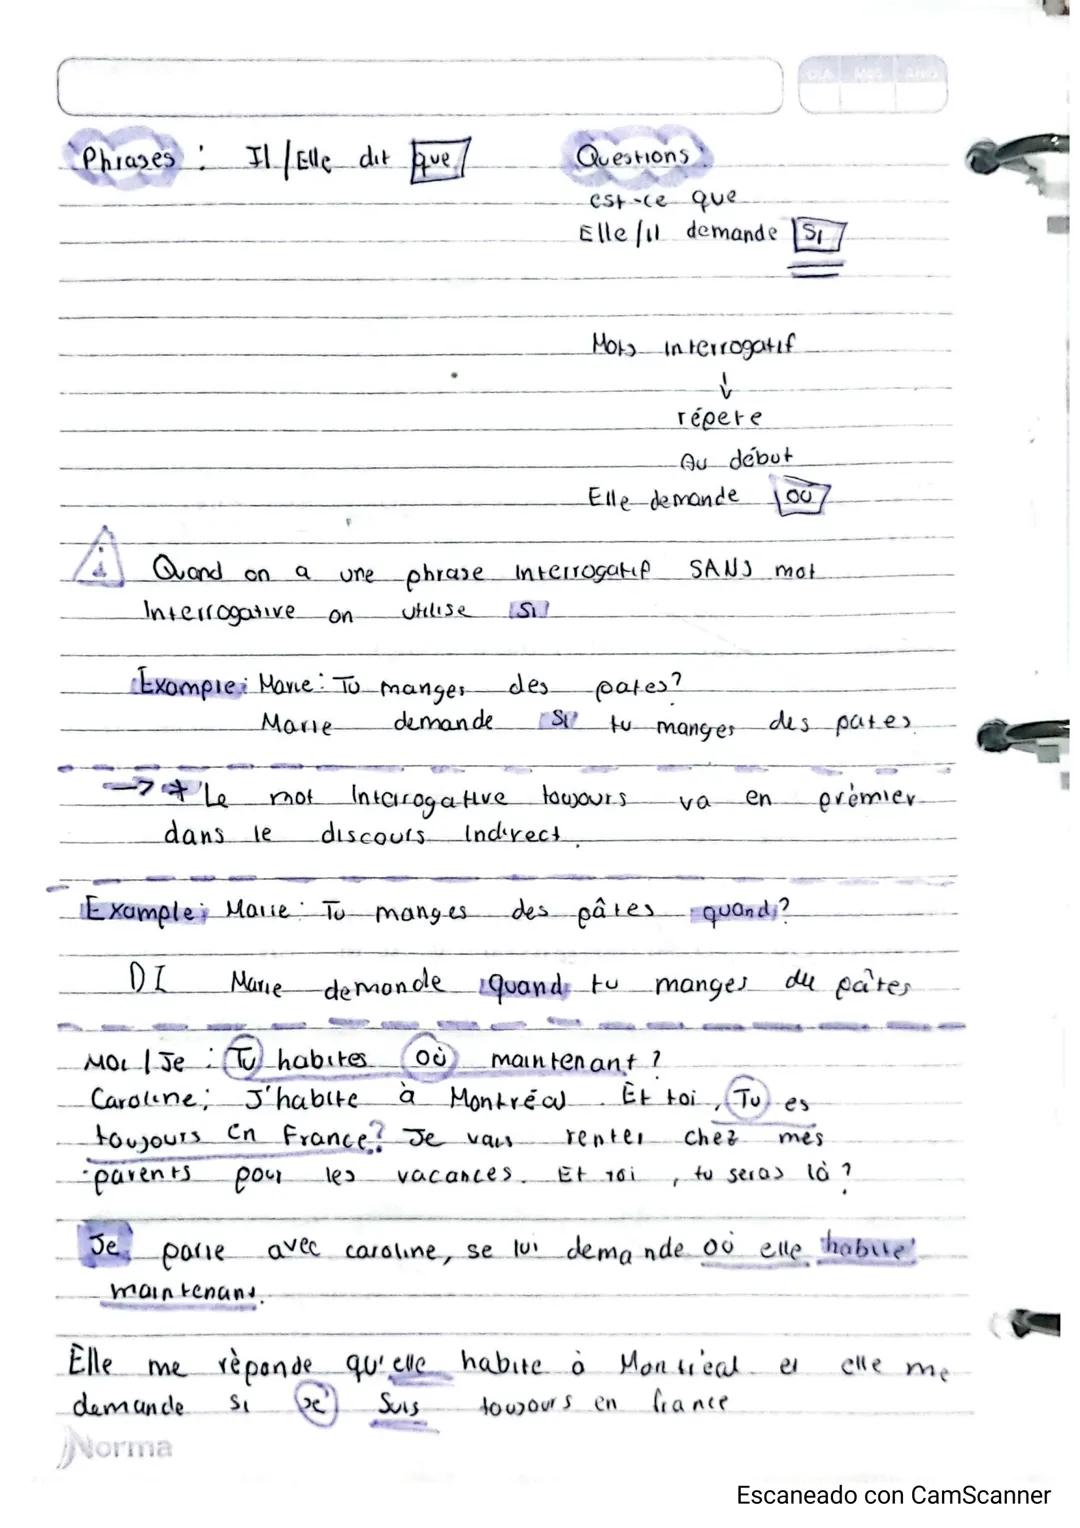 DIA MES AÑO
Phrases : Il / Elle dit que
Questions
est-ce que
Elle / il demande Si
Mots interrogatif
↓
répete
Au début
Elle demande où
Quand on a une phrase interrogatif SANS mot
Interrogative on utilise Si
Example: Marie: Tu manges des pates?
Marie demande Si tu manges des pates
→ * Le mot Interrogative toujours va en prèmier
dans le discours Indirect.
Example: Marie: Tu manges des pâtes quand?
DI Marie demande quand tu manges de pâtes
Moi / Je : Tu habites où maintenant ?
Caroline; J'habite à Montréal. Et toi, Tu es
toujours en France? Je vais renter chez mes
parents pour les vacances. Et toi, tu seras là ?
Je parle avec caroline, se lui demande où elle habite
maintenant.
Elle me rèponde qu'elle habite à Montréal et elle me
demande si je Suis toujours en france
Norma
Escaneado con CamScanner